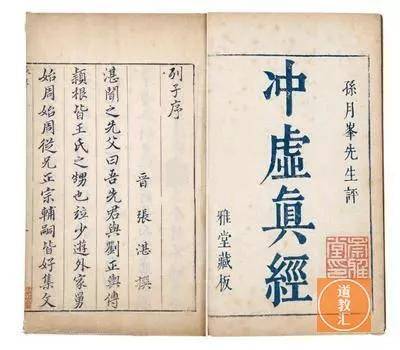 孫月峯先生評
冲虛眞經
雅堂藏板
道教汇
列子序
晋 張湛 撰
湛聞之先父曰吾先君與劉正與傳
頴根皆王氏之甥也竝少遊外家舅
始周始周從兄正宗輔嗣皆好集文